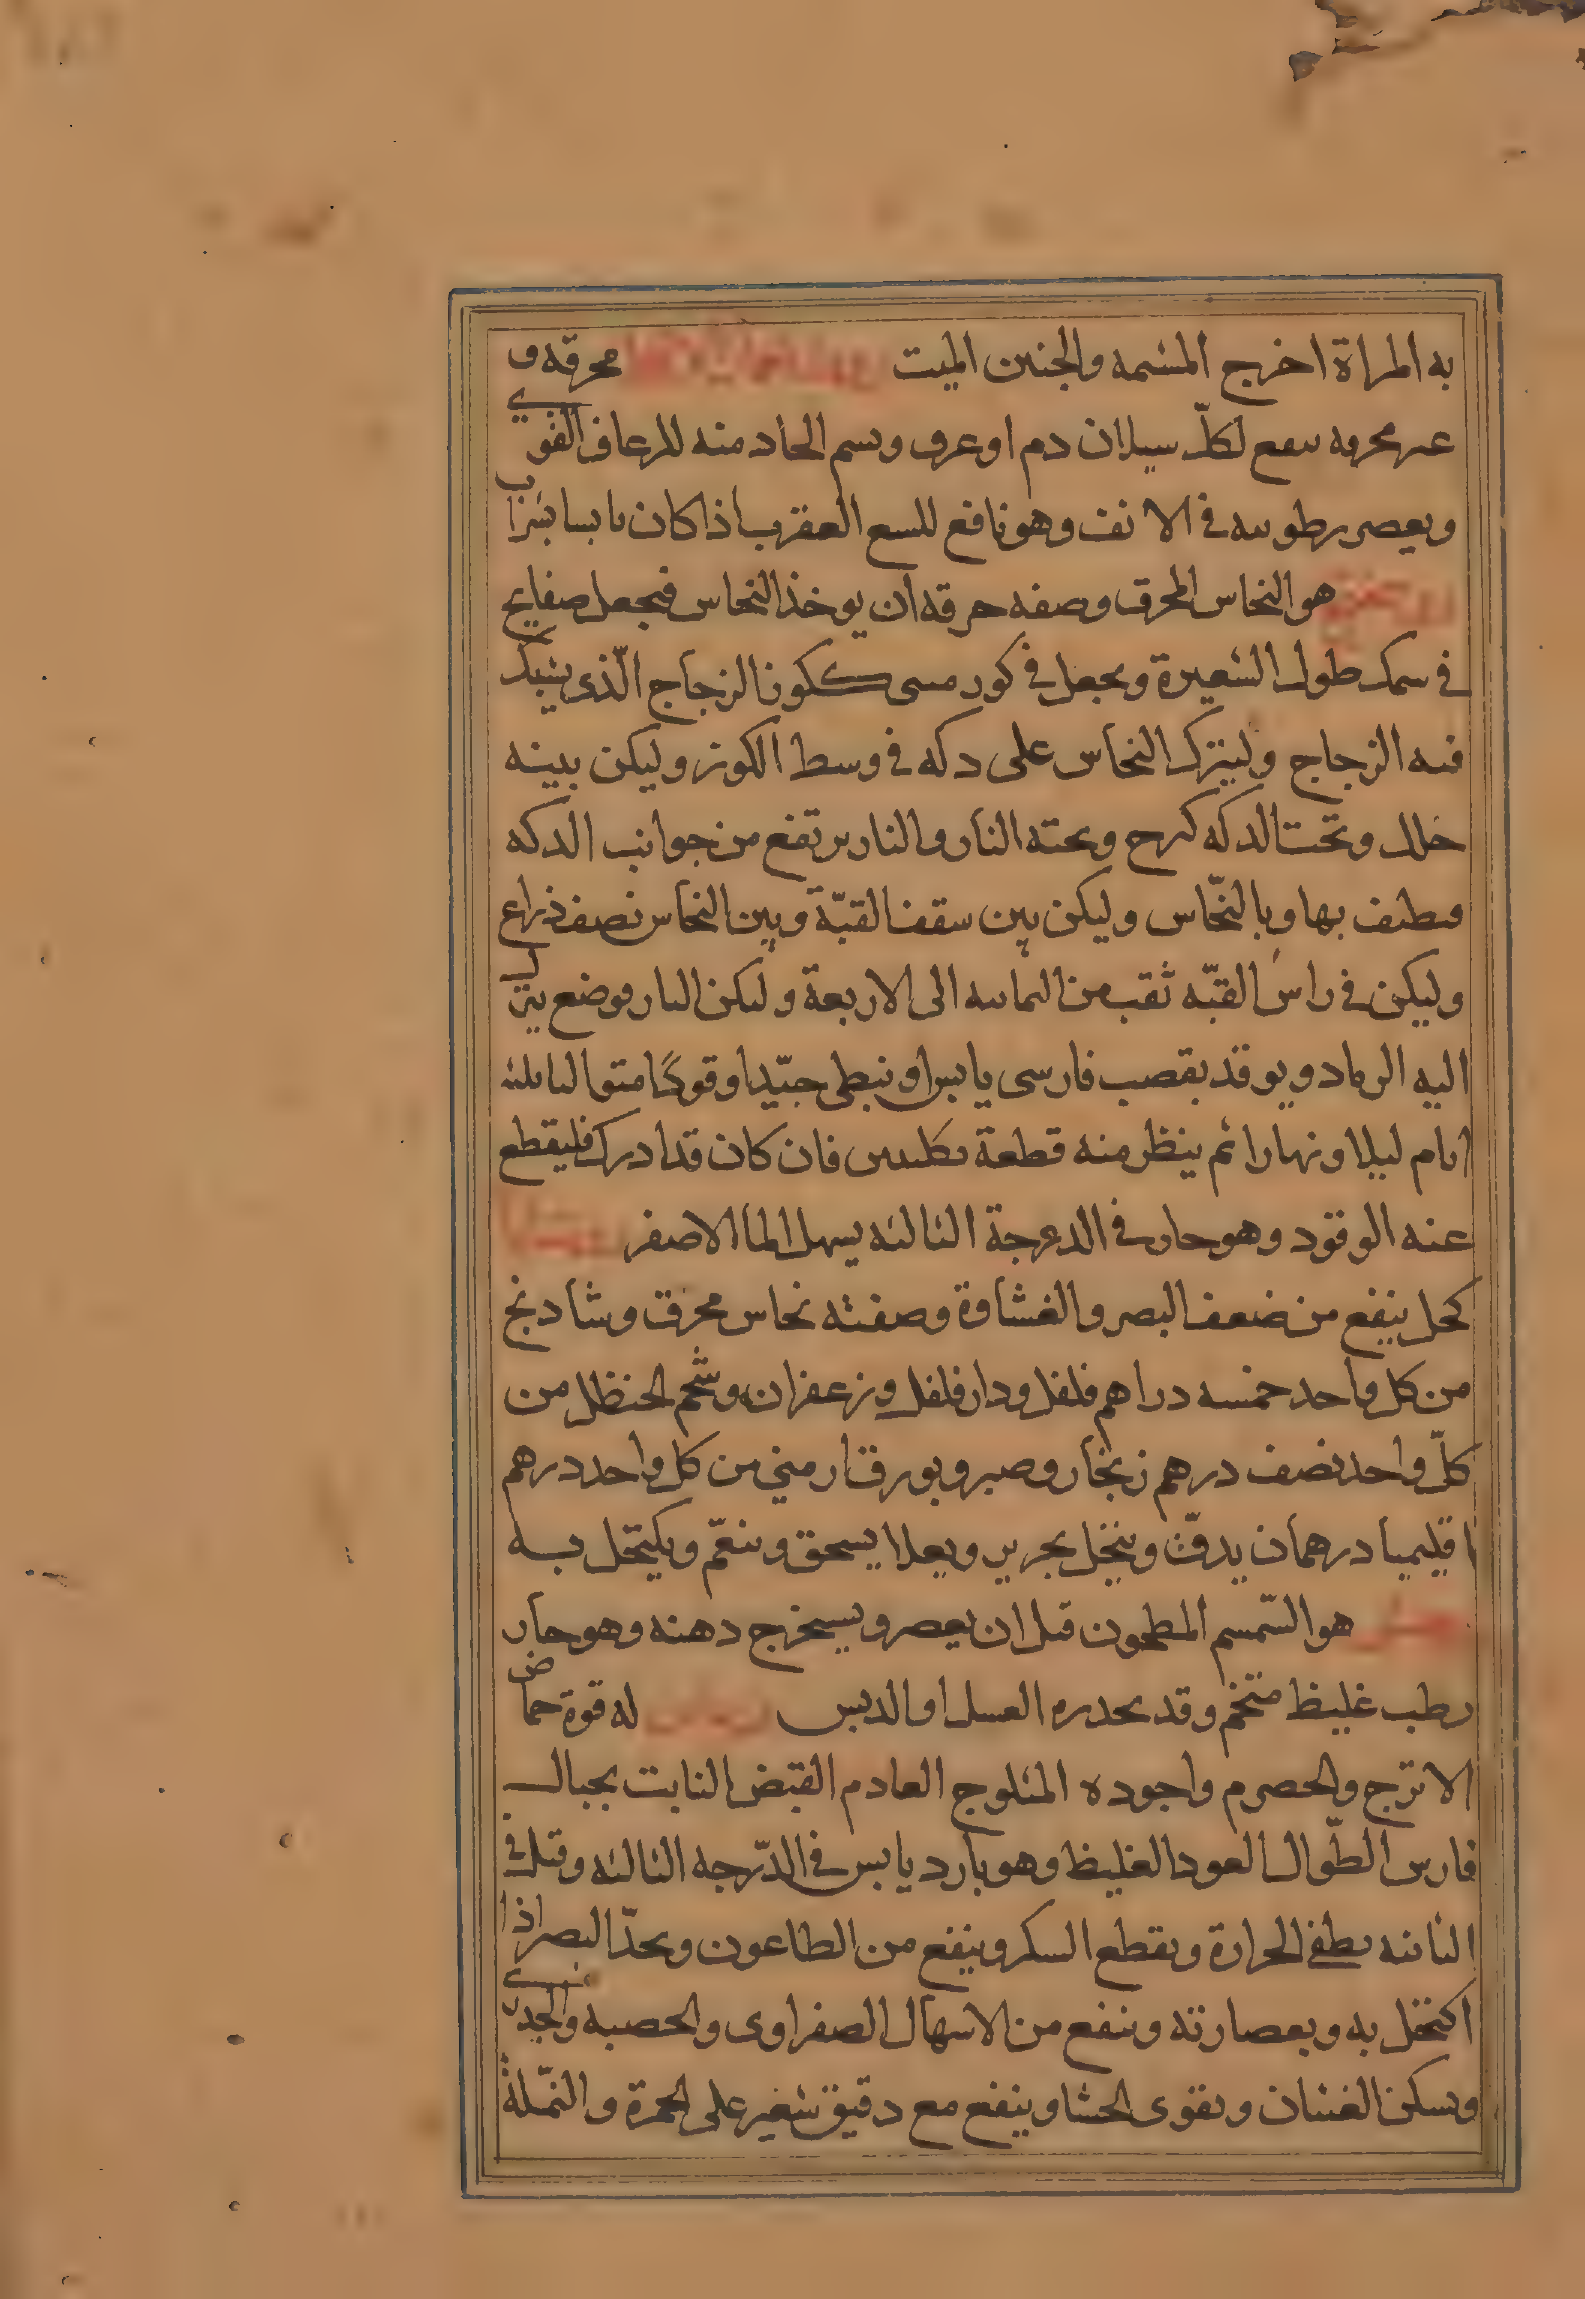 به المراة اخرج المشمه والجنين الميت محرقه و
عىر محرقه ىىفع لكلّ سيلان دم او عرق ويسم الحاد منه للرعاف القوي
ويعصر رطوبىه في الانف وهو نافع للسع العقرب اذا كان يابسا بشراب
هو النحاس المحرق وصفه حرقه ان يوخذ النحاس فيجعل صفايح
في سمك طول الشعيرة ويجعل في كور مسمى ككونا الزجاج الّذى يسبك
فيه الزجاج وليترك النحاس على دكه في وسط الكوز وليكن بينه
خلل وتحت الدكه كرح وتحته النار والنار يرتفع من جوانب الدكه
فيطيف بها وبالنحّاس وليكن بين سقف القبّة وبين النحاس نصف ذراع
وليكن في راس القبّه ثقب من الثمانيه الى الاربعة وليكن النار موضع ينزل
اليه الرماد ويوقد بقصب فارسى يابس او نبطى جيّد اوقودًا متواليا ثلثة
ايام ليلا ونهارا ثم ينظر منه قطعة بكلبتين فان كان قد ادرك فليقطع
عنه الوقود وهو حار في الدرجة الثالثه يسهل الماا الاصفر
كحل ينفع من ضعف البصر والغشاوة وصفته نحاس محرق وشادنج
من كل واحد خمسه دراهم فلفل ودارفلفل وزعفران وشحم الحنظل من
كلّ واحد نصف درهم زنجار وصبر وبورق ارمني من كل واحد درهم
اقليميا درهمان يدقّ وينخل بحرير ويعلا يسحق وينعّم ويكتحل به
هو السّمسم المطحون قبل ان يعصر ويستخرج دهنه وهو حار
رطب غليظ متخم وقد يحدره العسل او الدبس له قوة حماض
الاترج والحصرم واجوده المثلوج العادم القبض النابت بجبال
فارس الطّوال العود الغليظ وهو بارد يابس في الدّرجه الثالثه وقيل في
الثانيه يطفى الحرارة ويقطع السكر وينفع من الطاعون ويحدّ البصر اذا
اكتحل به وبعصارته وينفع من الاسهال الصفراوى والحصبه والجدري
ويسكن الغثيان ويقوى الحشا وينفع مع دقيق شعير على الحمرة والنّملة